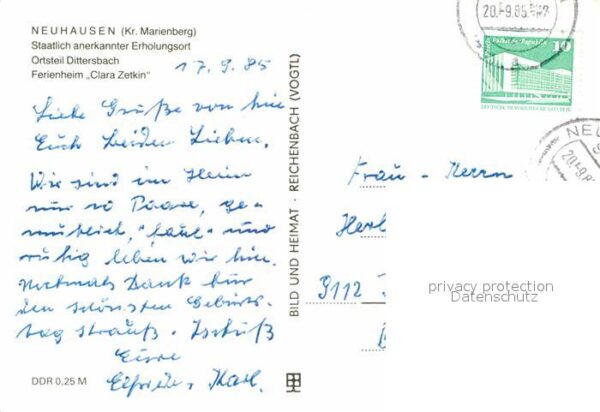 NEUHAUSEN (Kr. Marienberg)
Staatlich anerkannter Erholungsort
Ortsteil Dittersbach
Ferienheim „Clara Zetkin"
17.9.85
Liebe Grüße von hier
Euch beiden Lieben.
Wir sind im Heim
nur 10 Paare, ge-
mütlich, "faul" und
ruhig leben wir hin.
Nochmals Dank für
den schönsten Geburts-
tag strauß.
Eure
Elfriede, Karl.
DDR 0,25 M
BILD UND HEIMAT · REICHENBACH (VOGTL)
20.-9.85
10
DEUTSCHE DEMOKRATISCHE REPUBLIK
NEU
20.-9.8
Frau - Herrn
Herb
9112
privacy protection
Datenschutz